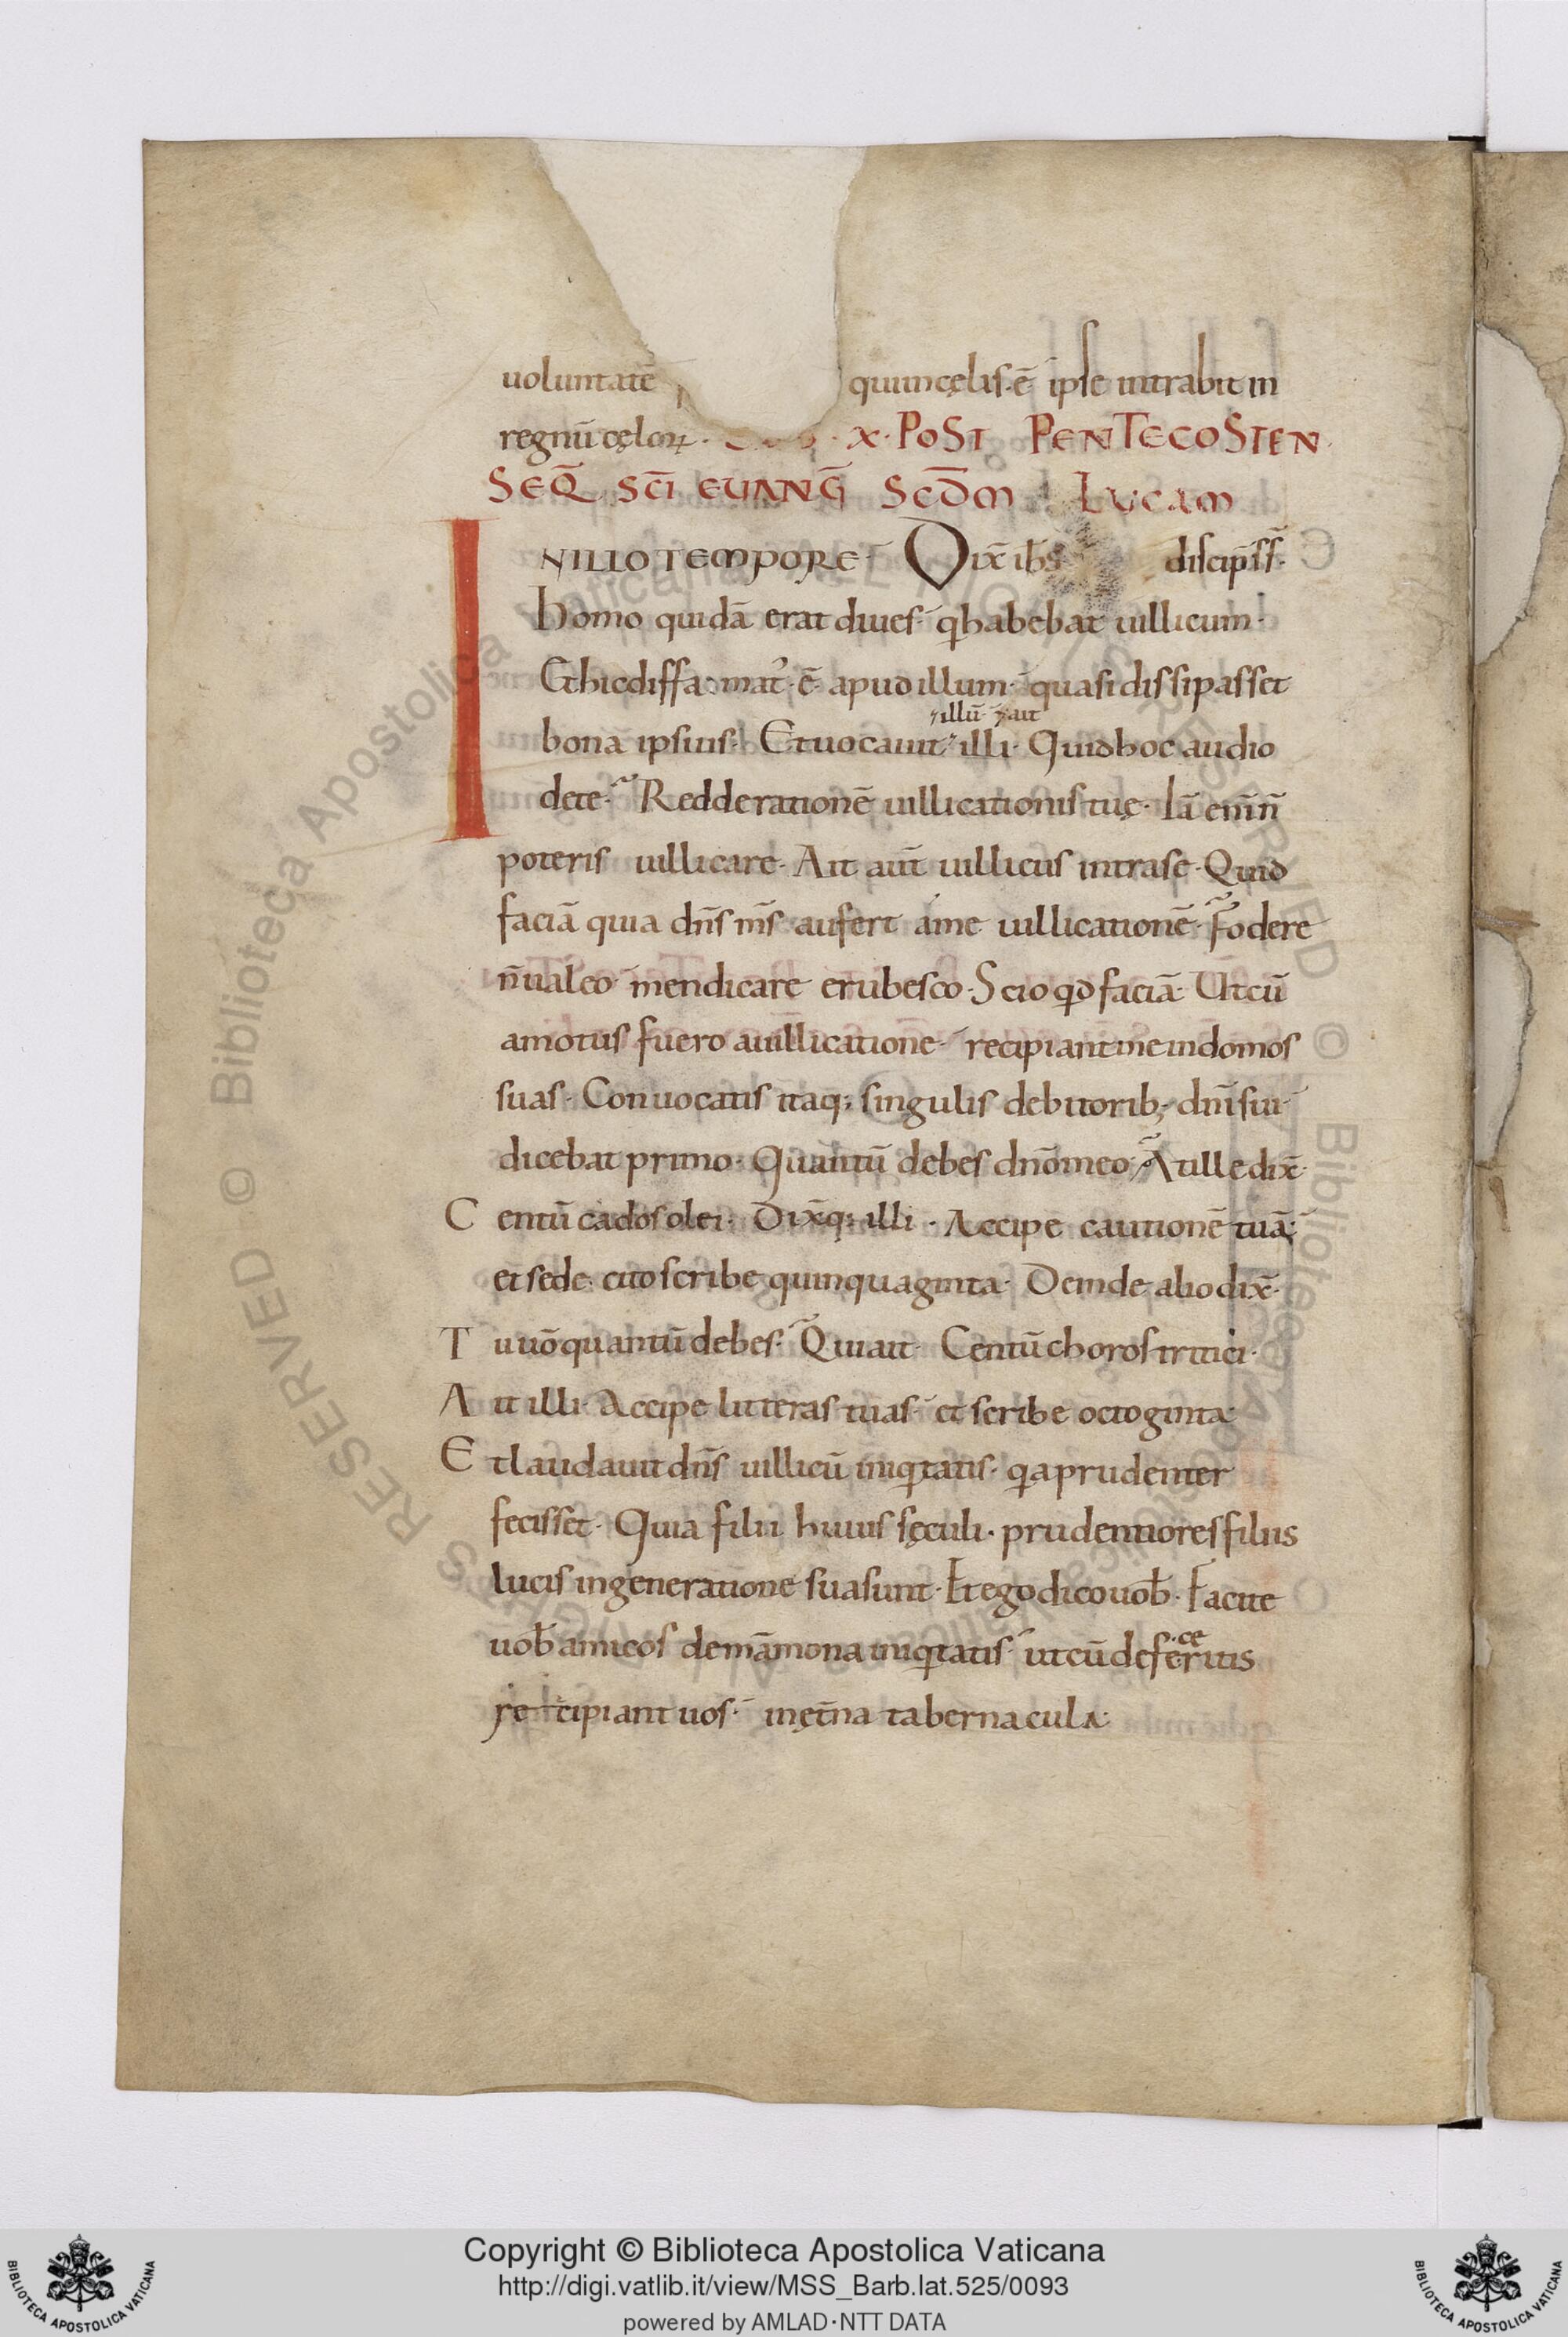 uoluntatē qui in cęlis · ē ipse intrabit in
regnū cęloꝝ · x · POST PENTECOSTEN ·
SEQ̄ SC̄I EUANḠ SCD̄M LUCAM
INILLO TEMPORE · Dix̄ ih̄s discip̄ss̄ ·
Homo quidā erat diues · q̄ habebat uillicum ·
Et hic diffamat᷒ · ē apud illum · quasi dissipasset
illū · ait
bona ipsius · Et uocauit illi · Quid hoc audio
de te · Redde rationē uillicationis tuę · Iā enī n̄
poteris uillicare · Ait aut̄ uillicus intra se · Quid
faciā quia dn̄s m̄s aufert a me uillicationē · Fodere
n̄ ualeo mendicare erubesco · Scio qd faciā · Ut cū
amotus fuero a uillicatione · recipiant me in domos
suas · Conuocatis itaq; singulis debitorib; dn̄i sui ·
dicebat primo · Quantū debes dn̄o meo · At ille dix̄ ·
Centū cados olei · Dix̄q; illi · Accipe cautionē tuā ·
et sede cito scribe quinquaginta · Deinde alio dix̄ ·
Tu uō quantū debes · Qui ait · Centū choros tritici ·
Ait illi · Accipe litteras tuas · et scribe octoginta ·
Et laudauit dn̄s uillicū iniqtatis · qa prudenter
fecisset · Quia filii huius sęculi · prudentiores filiis
lucis in generatione sua sunt · Et ego dico uob̄ · Facite
ce
uob̄ amicos de māmona iniqtatis · ut cū deferitis
recipiant uos · in ęt̄na tabernacula ·
Copyright © Biblioteca Apostolica Vaticana
http://digi.vatlib.it/view/MSS_Barb.lat.525/0093
powered by AMLAD·NTT DATA
BIBLIOTECA APOSTOLICA VATICANA
BIBLIOTECA APOSTOLICA VATICANA